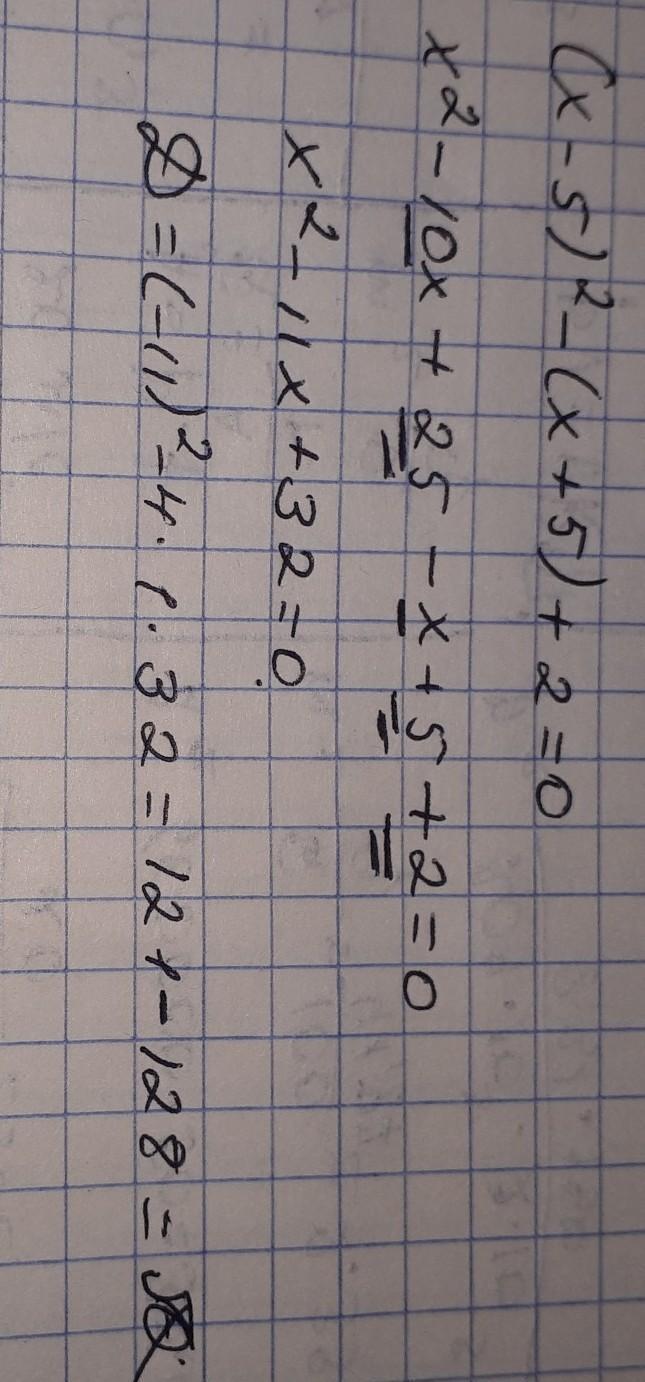 (x-5)²-(x+5)+2=0
x²-10x+25-x+5+2=0
x²-11x+32=0
D=(-11)²-4·1·32=121-128=